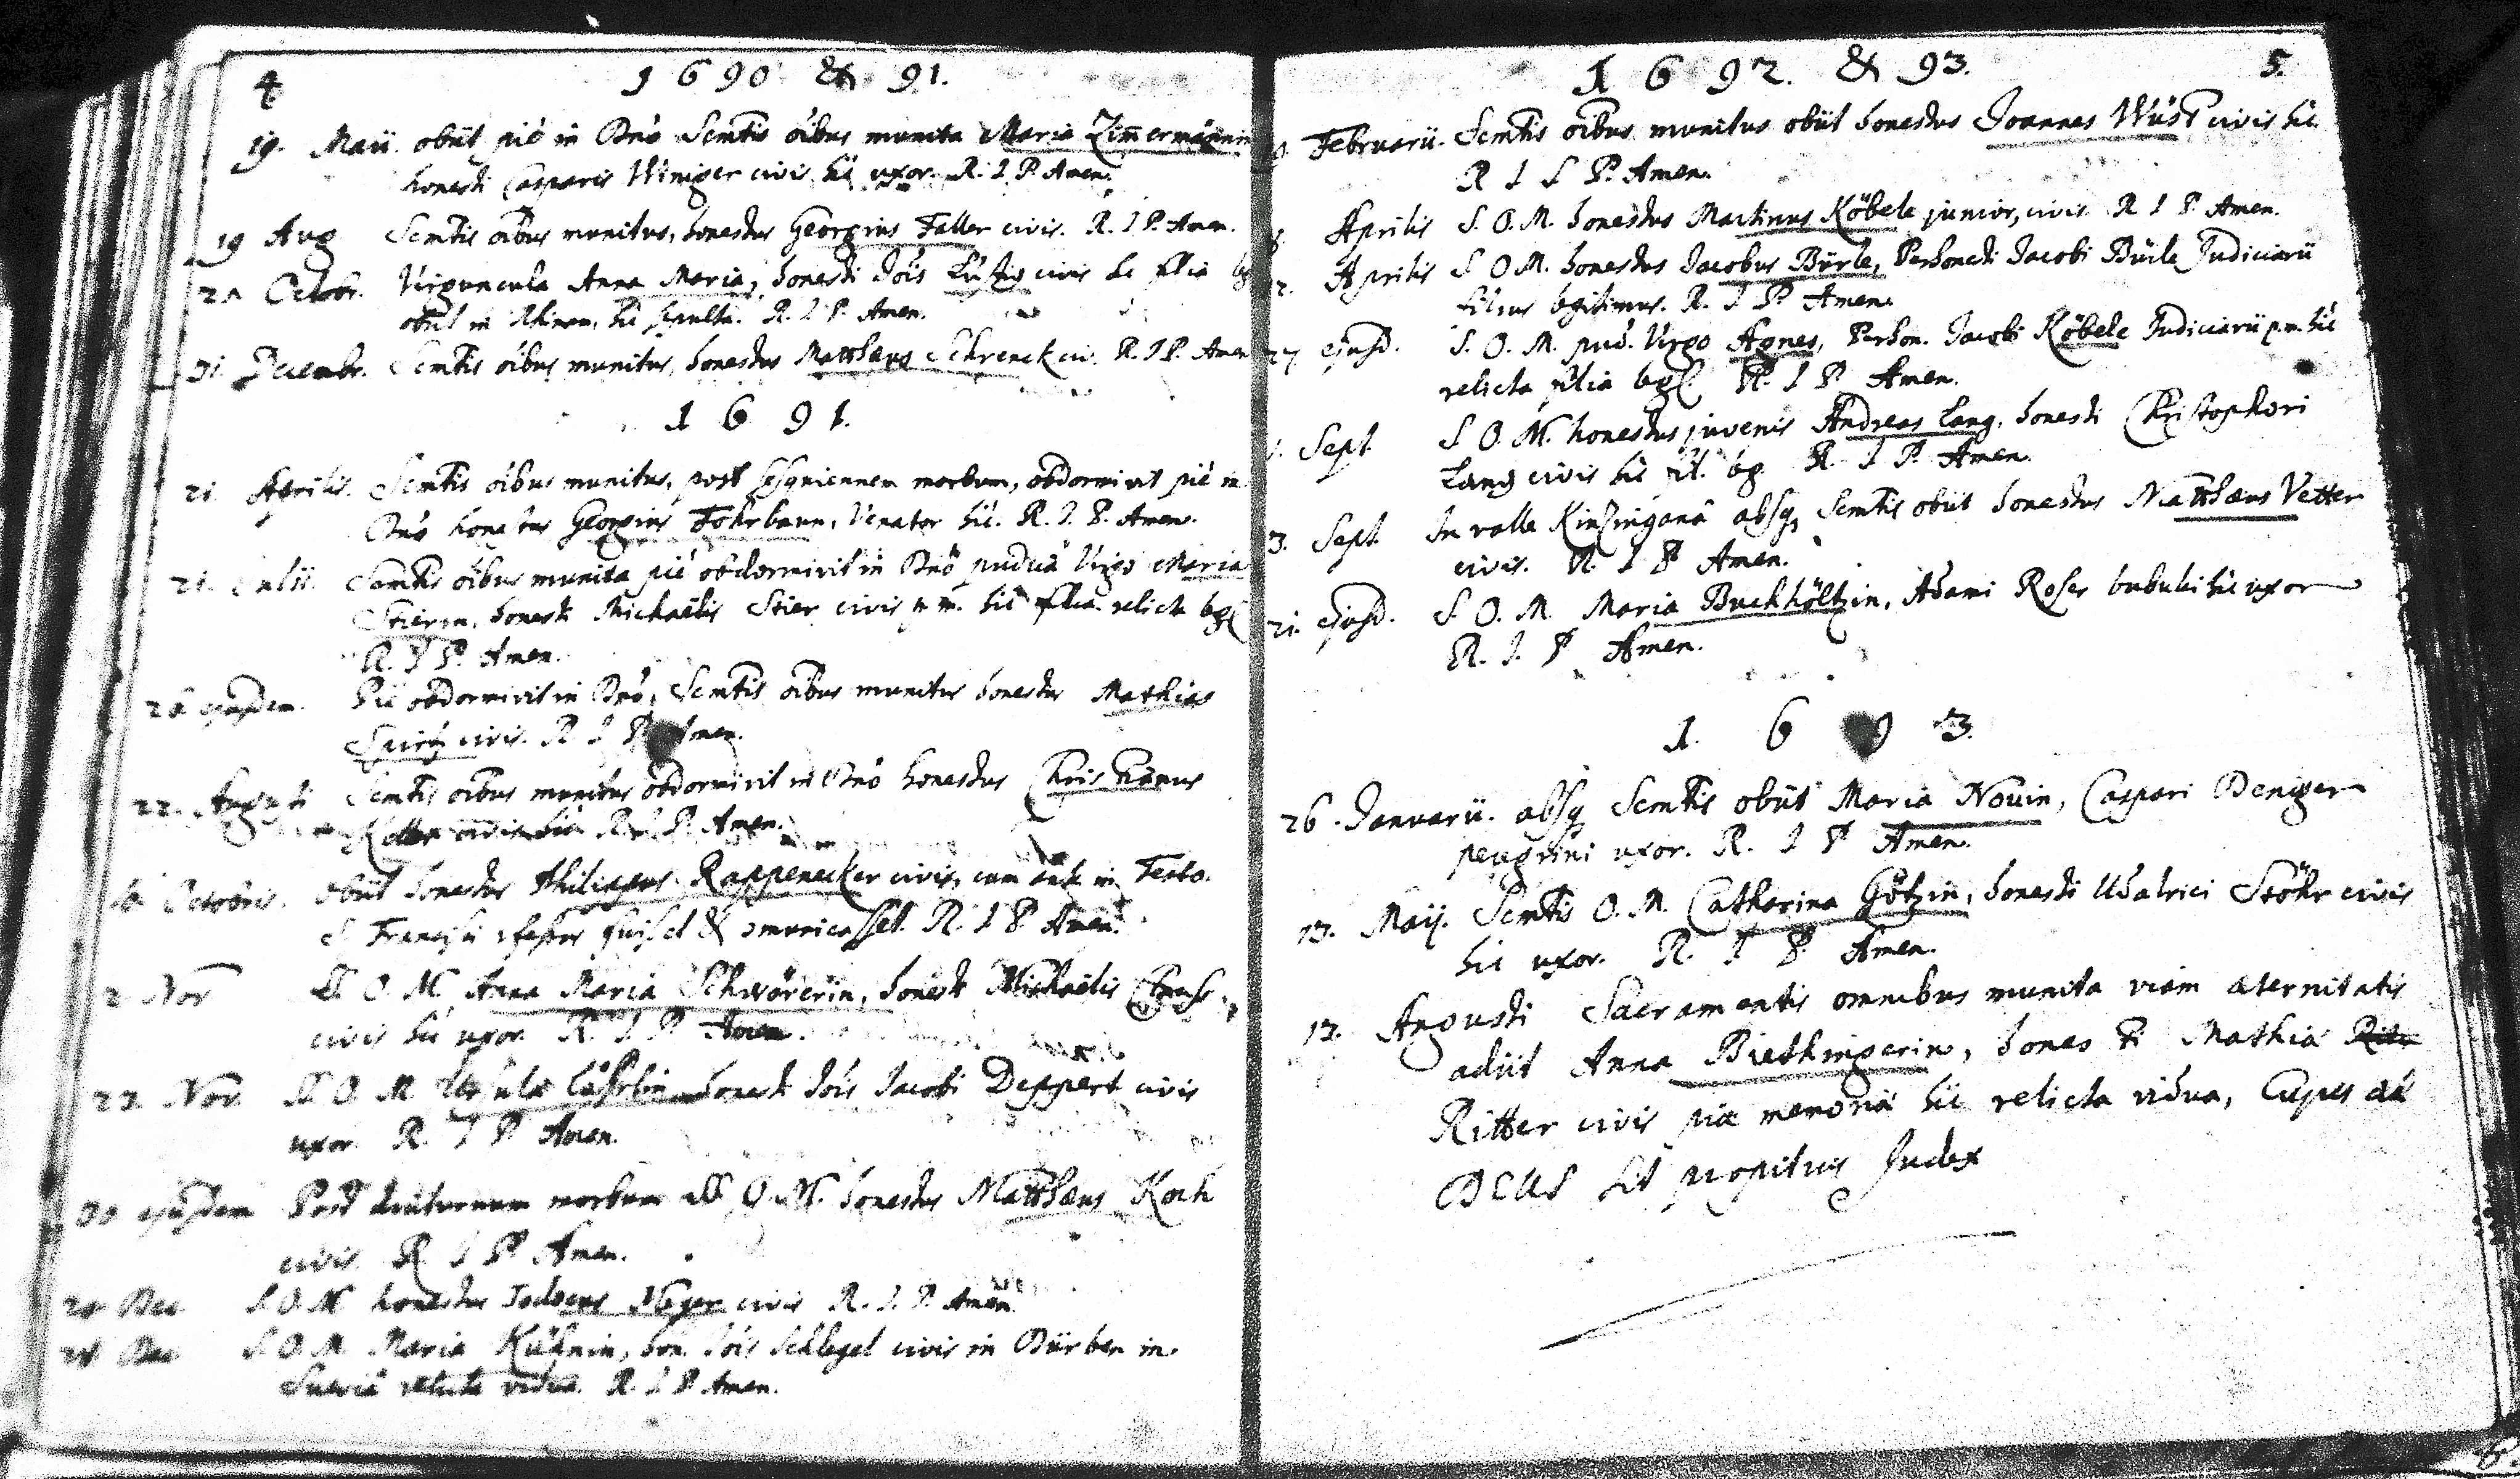 4
1690 & 91.
19. Maii. obiit pié in Dnó Semtis óibus munita Maria Zim̄ermännin
honesti Casparis Winiger civis hic uxor. R. I P. Amen.
19 Aug Semtis óibus munitus, honestus Georgius Faller civis. R. I P. Amen.
Octobr. Virguncula Anna Maria, honesti Jois civis hc filia
obiit in Rhinau, hic sepulta. R. I P. Amen.
31. Decembr. Semtis óibus munitus, honestus Matthæus Schrenck civ. R. I P. Amen
1691.
21. Aprilis. Semtis óibus munitus, post morbum, obdormivit pié in
Dnó honestus Georgius Fohrbaun, Venator hic. R. I. P. Amen.
21. Julii. Semtis óibus munita pié obdormivit in Dnó pudica Virgo Maria
Stierin, honesti Michaëlis Stier civis p. m. hic filia relicta leg
R. I P. Amen.
ejusdem. Pié obdormivit in Dnó, Semtis óibus munitus honestus Mathias
civis. R I P Amen.
22. Augusti Semtis óibus munitus obdormivit in Dnó honestus Christianus
Koller civis hic R. I. P. Amen.
Octobris. obiit honestus Philippus Rappenecker civis, cum in Festo
S. Francisci & R. I P Amen.
2 Nov S. O. M. Anna Maria Schwörerin, honesti Michaëlis
civis hic uxor. R. I P Amen.
22. Nov. S. O. M. honesti Jois Jacobi Deppert civis
uxor. R. I P Amen.
30 ejusdem Post diuturnum morbum S. O. M. honestus Matthæus Koch
civis. R I P Amen.
Dec S. O. M honestus Jodocus Meyer civis R. I. P. Amen
Dec S. O. M. Maria Kühnin, hon. Jois Schlegel civis in Dürben in
Suevia relicta vidua. R. I P Amen.
1692. & 93.
5.
Februarii. Semtis óibus munitus obiit honestus Joannes Wüst civis hic.
R I S P. Amen.
Aprilis S. O. M. honestus Martinus Köbele junior, civis. R I P. Amen.
Aprilis S O M. honestus Jacobus Bürle, Perhonesti Jacobi Bürle Judiciarii
filius legitimus. R. I P Amen.
27 ejusd. S. O. M. pud. Virgo Agnes, Perhon. Jacobi Köbele Judiciarii p. m. hic
relicta filia leg. R. I P Amen.
Sept. S O. M. honestus juvenis Andreas Lang, honesti Christophori
Lang civis hic fil. leg. R. I P. Amen.
3. Sept. In valle Kinzingana absq, Semtis obiit honestus Matthæus Vetter
civis. R. I P Amen.
21. ejusd. S. O. M. Maria Buchhöltzin, Adami Roser bubulci hic uxor
R. I. P Amen.
1. 6 9 3.
26. Januarii. absq Semtis obiit Maria Nouin, Caspari Deniger
peregrini uxor. R. I P Amen.
13. Maij. Semtis O. M. Catharina Götzin, honesti Udalrici Stöhr civis
hic uxor. R. I P. Amen.
12. Augusti Sacramentis omnibus munita viam æternitatis
adiit Anna Biethingerin, honesti Mathiæ
Ritter civis piæ memoriæ hic relicta vidua, Cujus
DEUS sit propitius Judex